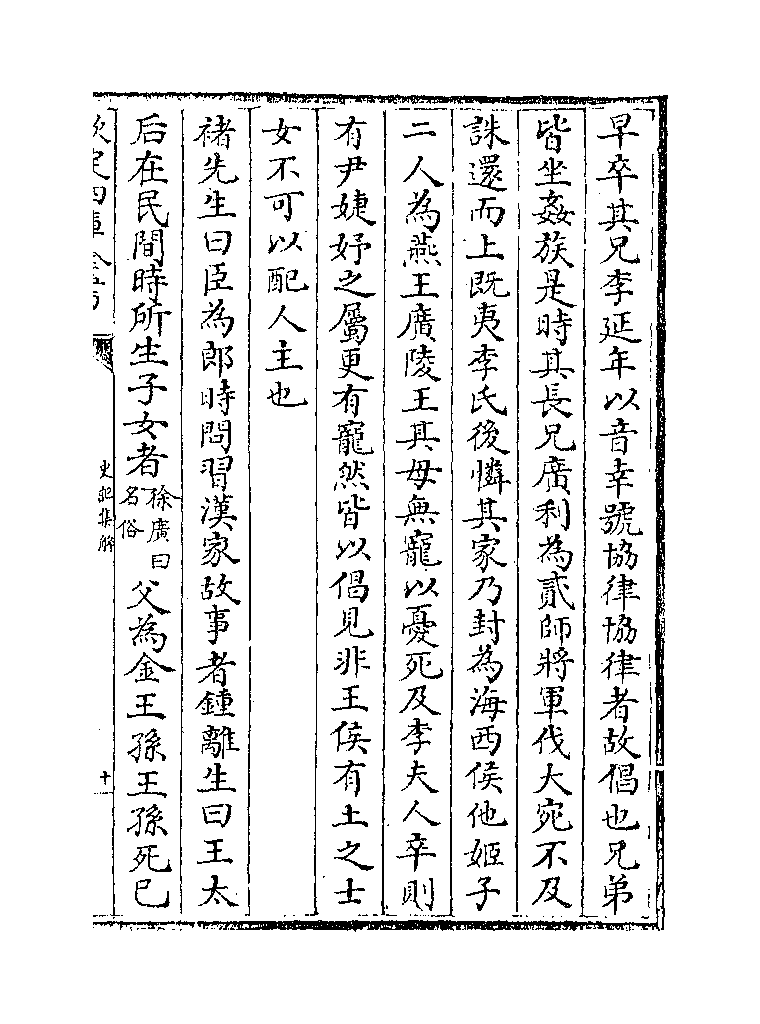 早卒其兄李延年以音幸號協律協律者故倡也兄弟
皆坐姦族是時其長兄廣利為貳師將軍伐大宛不及
誅還而上既夷李氏後憐其家乃封為海西侯他姬子
二人為燕王廣陵王其母無寵以憂死及李夫人卒則
有尹婕妤之屬更有寵然皆以倡見非王侯有土之士
女不可以配人主也
禇先生曰臣為郎時問習漢家故事者鍾離生曰王太
后在民間時所生子女者徐廣曰名俗父為金王孫王孫死已
史記集解
十